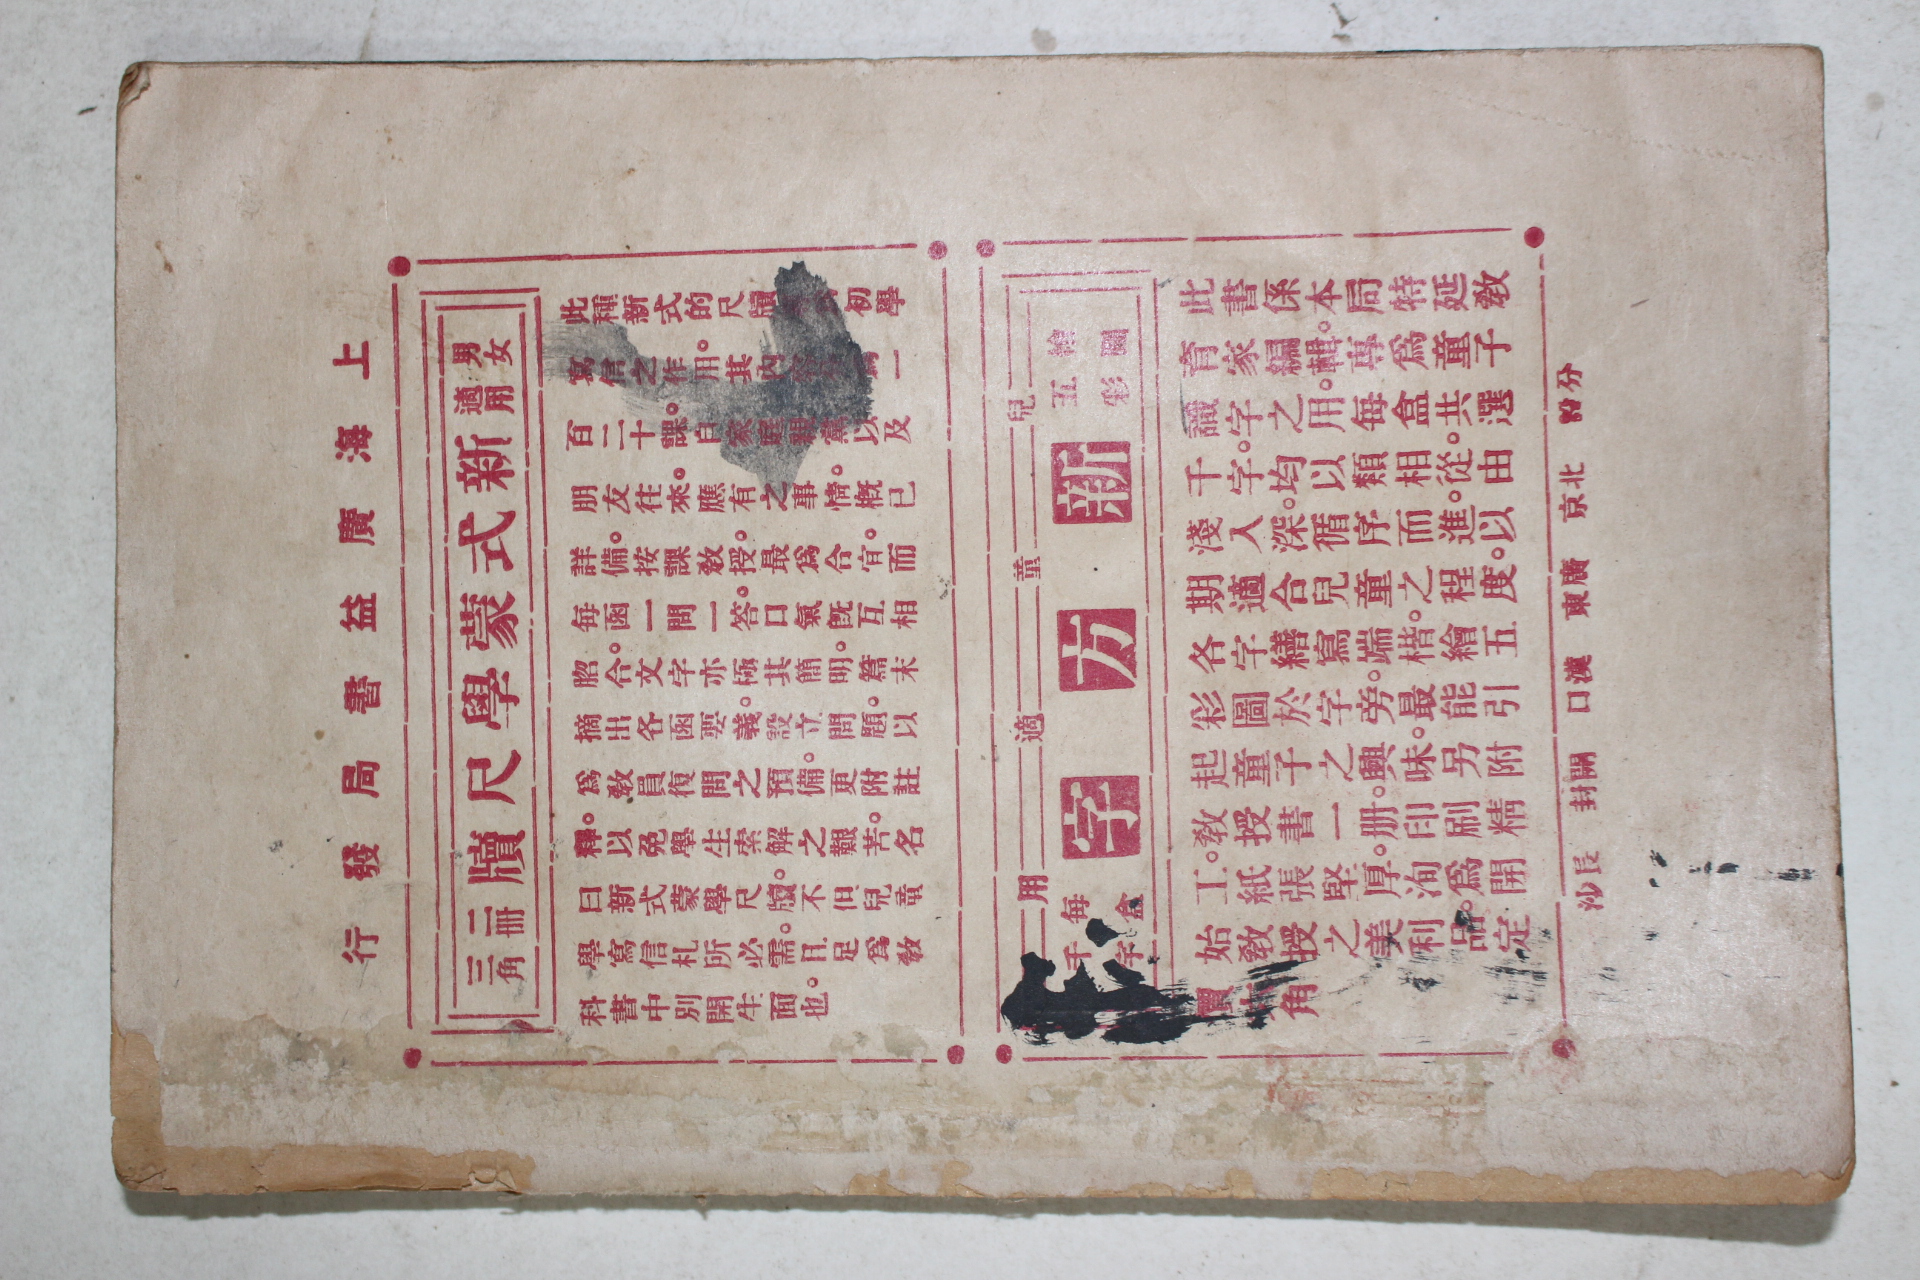 上海廣益書局發行
男女適用
新式蒙學尺牘
二冊
三角
此種新式的尺牘 初學
寫信之作用。其內容 爲一
百二十課。自家庭親黨以及
朋友往來。應有之事情。槪已
詳備。按課敎授。最爲合宜。而
每函一問一答。口氣旣互相
脗合。文字亦極其簡明。篇末
摘出各函要義。設立問題。以
爲敎員復問之預備。更附註
釋。以免學生索解之艱苦。名
曰新式蒙學尺牘。不但兒童
學寫信札所必需。且足爲敎
科書中別開生面也。
兒童適用
繪圖
五彩
新方字
每盒
千字
此書係本局特延敎
育家編輯。專爲童子
識字之用。每盒共選
千字。均以類相從。由
淺入深。循序而進。以
期適合兒童之程度。
各字繕寫端楷。繪五
彩圖於字旁。最能引
起童子之興味。另附
敎授書一册。印刷精
工。紙張堅厚。洵爲開
始敎授之美利品。定
價六角
分設 北京 廣東 漢口 開封 長沙